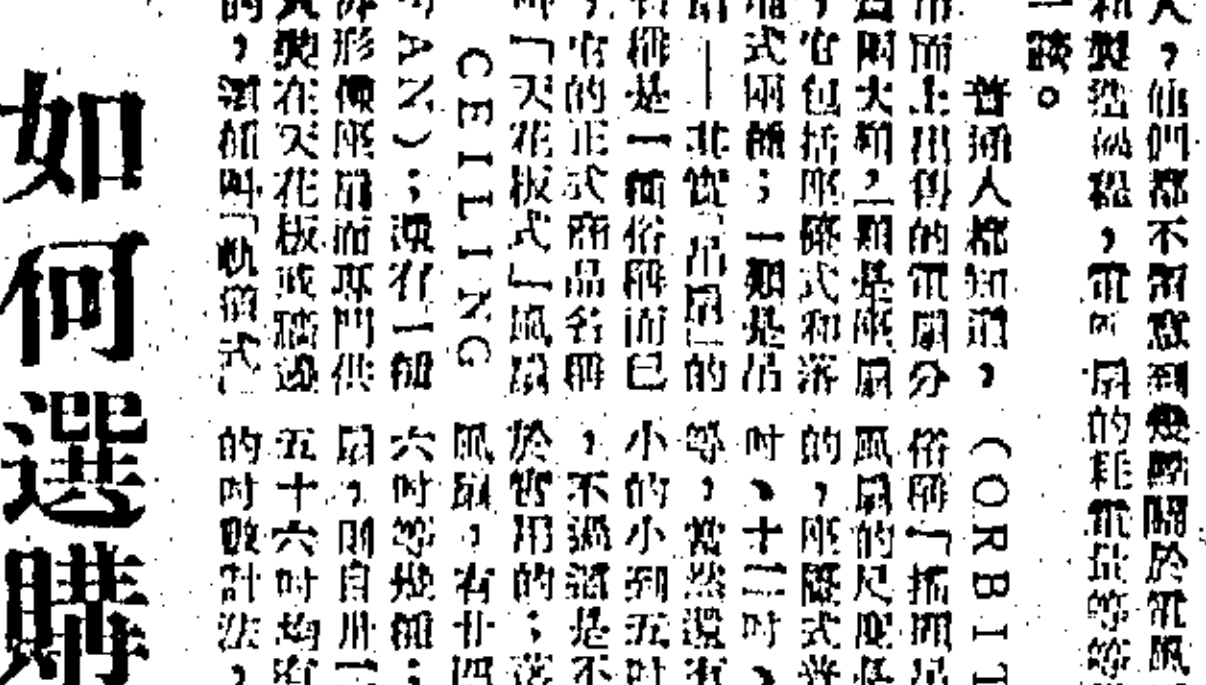 人，他們都不留意到幾點關於電風
和製造過程，電風扇的耗電量等等
一談。
普通人都知道，
市面上出售的電扇分
爲兩大類：一類是座扇
，它包括座檯式和落
地式兩種；一類是吊
扇——其實「吊扇」的
名稱是一個俗稱而已
，它的正式商品名稱
叫「天花板式」風扇
CEILING
AN）；還有一種
形像座扇而專門供
人裝在天花板或牆邊
的，這種叫「軌道式」
（ORBIT
俗稱「搖擺吊
風扇的尺度是
的，座檯式普
吋、十二吋、
等，當然還有
小的小到五吋
，不過這是不
於實用的；落
風扇，有廿四
六吋等幾種；
扇，則自卅一
五十六吋均有
的吋數計法，
如何選購